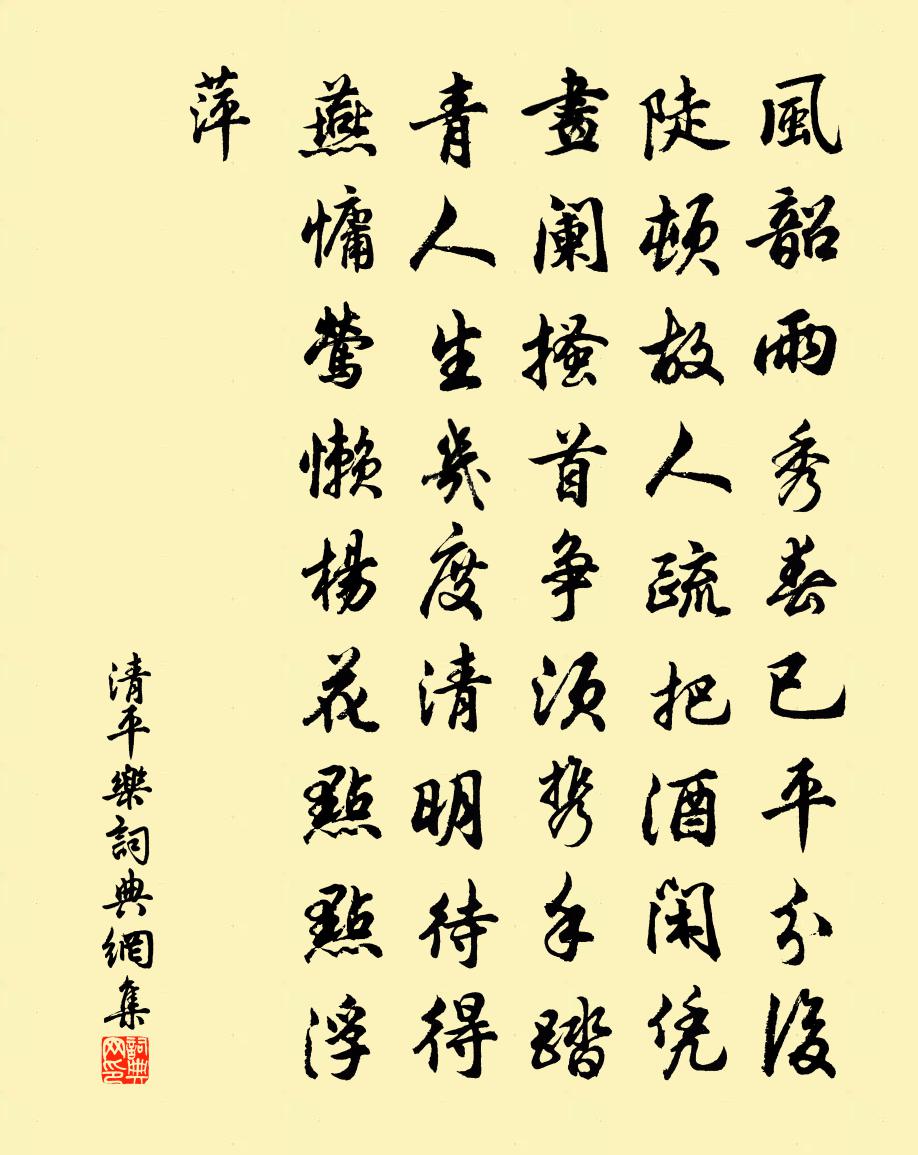 風韶雨秀春已平分後
陡頓故人疏把酒閑凭
畫闌搔首争須携手踏
青人生幾度清明待得
燕慵鶯懶楊花點點浮
萍
清平樂詞典網集
詞典网印